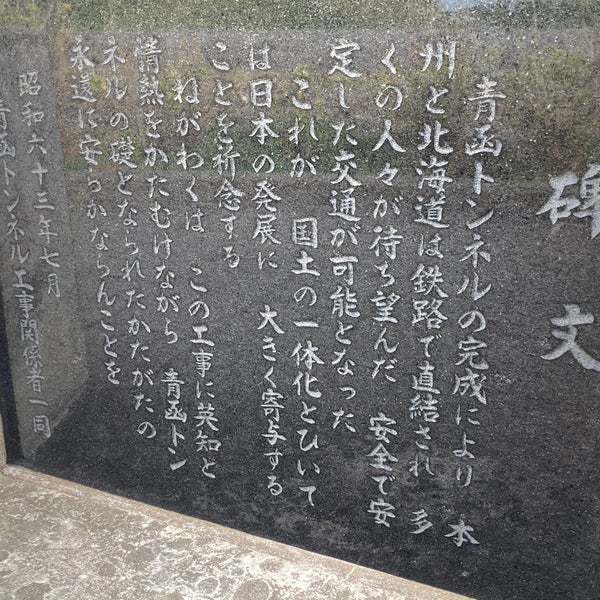 碑文
青函トンネルの完成により 本
州と北海道は鉄路で直結され 多
くの人々が待ち望んだ 安全で安
定した交通が可能となった
これが 国土の一体化とひいて
は日本の発展に 大きく寄与する
ことを祈念する
ねがわくは この工事に英知と
情熱をかたむけながら 青函トン
ネルの礎となられたかたがたの
永遠に安らかならんことを
昭和六十三年七月
青函トンネル工事関係者一同